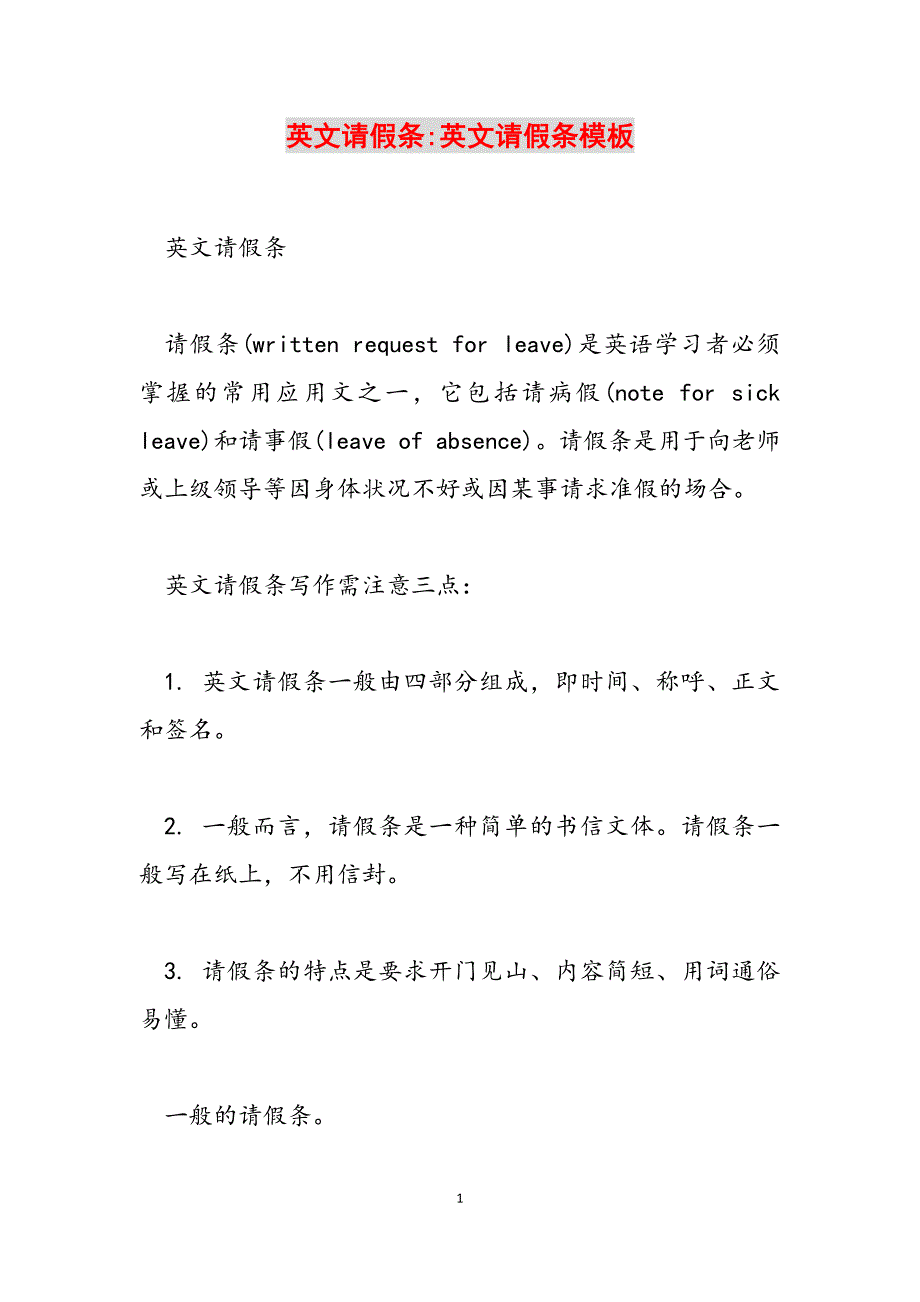 英文请假条:英文请假条模板
英文请假条
请假条(written request for leave)是英语学习者必须
掌握的常用应用文之一，它包括请病假(note for sick
leave)和请事假(leave of absence)。请假条是用于向老师
或上级领导等因身体状况不好或因某事请求准假的场合。
英文请假条写作需注意三点：
1. 英文请假条一般由四部分组成，即时间、称呼、正文
和签名。
2. 一般而言，请假条是一种简单的书信文体。请假条一
般写在纸上，不用信封。
3. 请假条的特点是要求开门见山、内容简短、用词通俗
易懂。
一般的请假条。
1